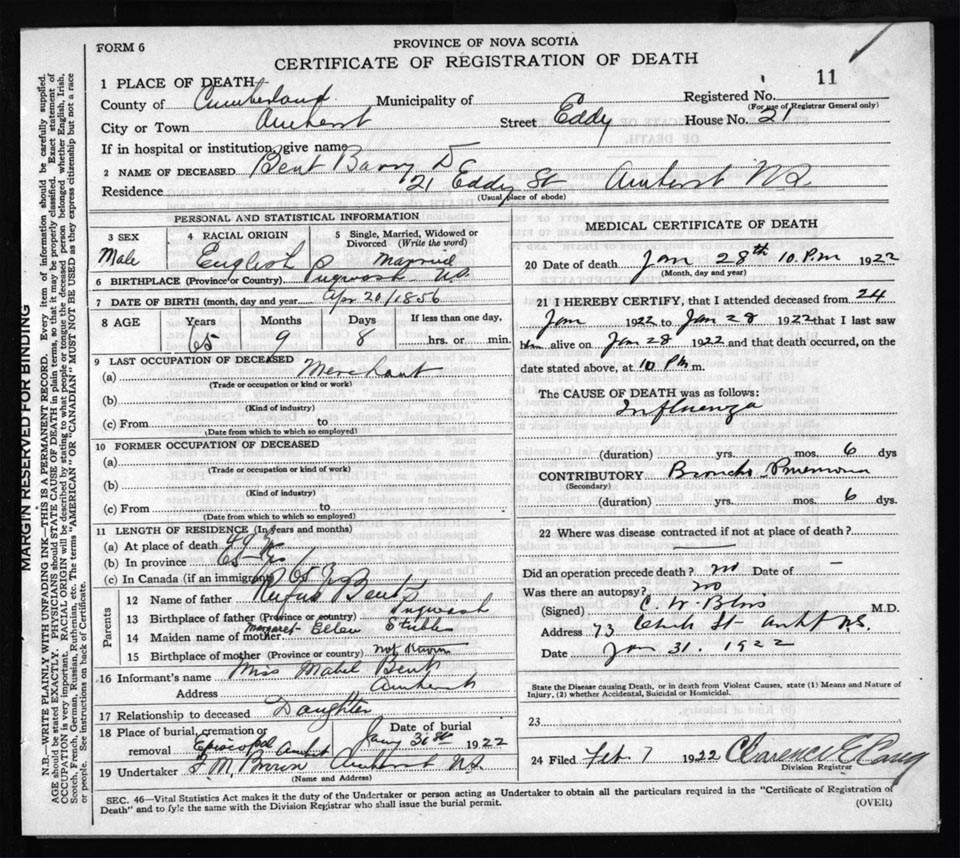 FORM 6
PROVINCE OF NOVA SCOTIA
CERTIFICATE OF REGISTRATION OF DEATH
1 PLACE OF DEATH
Registered No. 11
(For use of Registrar General only)
County of Cumberland Municipality of
City or Town Amherst Street Eddy House No. 21
If in hospital or institution, give name
2 NAME OF DECEASED Bent Barry D
Residence 21 Eddy St Amherst N.S.
(Usual place of abode)
PERSONAL AND STATISTICAL INFORMATION
3 SEX Male
4 RACIAL ORIGIN English
5 Single, Married, Widowed or Divorced (Write the word) Married
6 BIRTHPLACE (Province or Country) Pugwash N.S.
7 DATE OF BIRTH (month, day and year) Apr 20/1856
8 AGE Years 65 Months 9 Days 8 If less than one day, hrs. or min.
9 LAST OCCUPATION OF DECEASED
(a) Merchant
(Trade or occupation or kind of work)
(b)
(Kind of industry)
(c) From to
(Date from which to which so employed)
10 FORMER OCCUPATION OF DECEASED
(a)
(Trade or occupation or kind of work)
(b)
(Kind of industry)
(c) From to
(Date from which to which so employed)
11 LENGTH OF RESIDENCE (In years and months)
(a) At place of death
(b) In province 65
(c) In Canada (if an immigrant) 65
Parents
12 Name of father Rufus Bent
13 Birthplace of father (Province or country) Pugwash
14 Maiden name of mother Margaret Ellen
15 Birthplace of mother (Province or country) not known
16 Informant's name Miss Mabel Bent
Address Amherst
17 Relationship to deceased Daughter
18 Place of burial, cremation or removal Episcopal Amherst Date of burial Jany 31st 1922
19 Undertaker F M Brown Amherst N.S.
(Name and Address)
MEDICAL CERTIFICATE OF DEATH
20 Date of death Jan 28th 10 P.m 1922
(Month, day and year)
21 I HEREBY CERTIFY, that I attended deceased from 24
Jan 1922 to Jan 28 1922 that I last saw
him alive on Jan 28 1922 and that death occurred, on the
date stated above, at 10 P m.
The CAUSE OF DEATH was as follows:
Influenza
(duration) yrs. mos. 6 dys
CONTRIBUTORY Broncho Pneumonia
(Secondary)
(duration) yrs. mos. 6 dys.
22 Where was disease contracted if not at place of death?
Did an operation precede death? no Date of —
Was there an autopsy? no
(Signed) C. W. Bliss M.D.
Address 73 St Amht N.S.
Date Jan 31. 1922
State the Disease causing Death, or in death from Violent Causes, state (1) Means and Nature of
Injury, (2) whether Accidental, Suicidal or Homicidal.
23
24 Filed Feb. 7 1922 Clarence E
Division Registrar
SEC. 46—Vital Statistics Act makes it the duty of the Undertaker or person acting as Undertaker to obtain all the particulars required in the "Certificate of Registration of
Death" and to fyle the same with the Division Registrar who shall issue the burial permit.
(OVER)
MARGIN RESERVED FOR BINDING
N.B.—WRITE PLAINLY WITH UNFADING INK—THIS IS A PERMANENT RECORD. Every item of information should be carefully supplied.
AGE should be stated EXACTLY. PHYSICIANS should STATE CAUSE OF DEATH in plain terms, so that it may be properly classified. Exact statement of
OCCUPATION is very important. RACIAL ORIGIN will be described by stating to what people or tongue the deceased person belonged whether English, Irish,
Scotch, French, German, Russian, Ruthenian, etc. The terms "AMERICAN" OR "CANADIAN" MUST NOT BE USED as they express citizenship but not a race
or people. See instructions on back of Certificate.